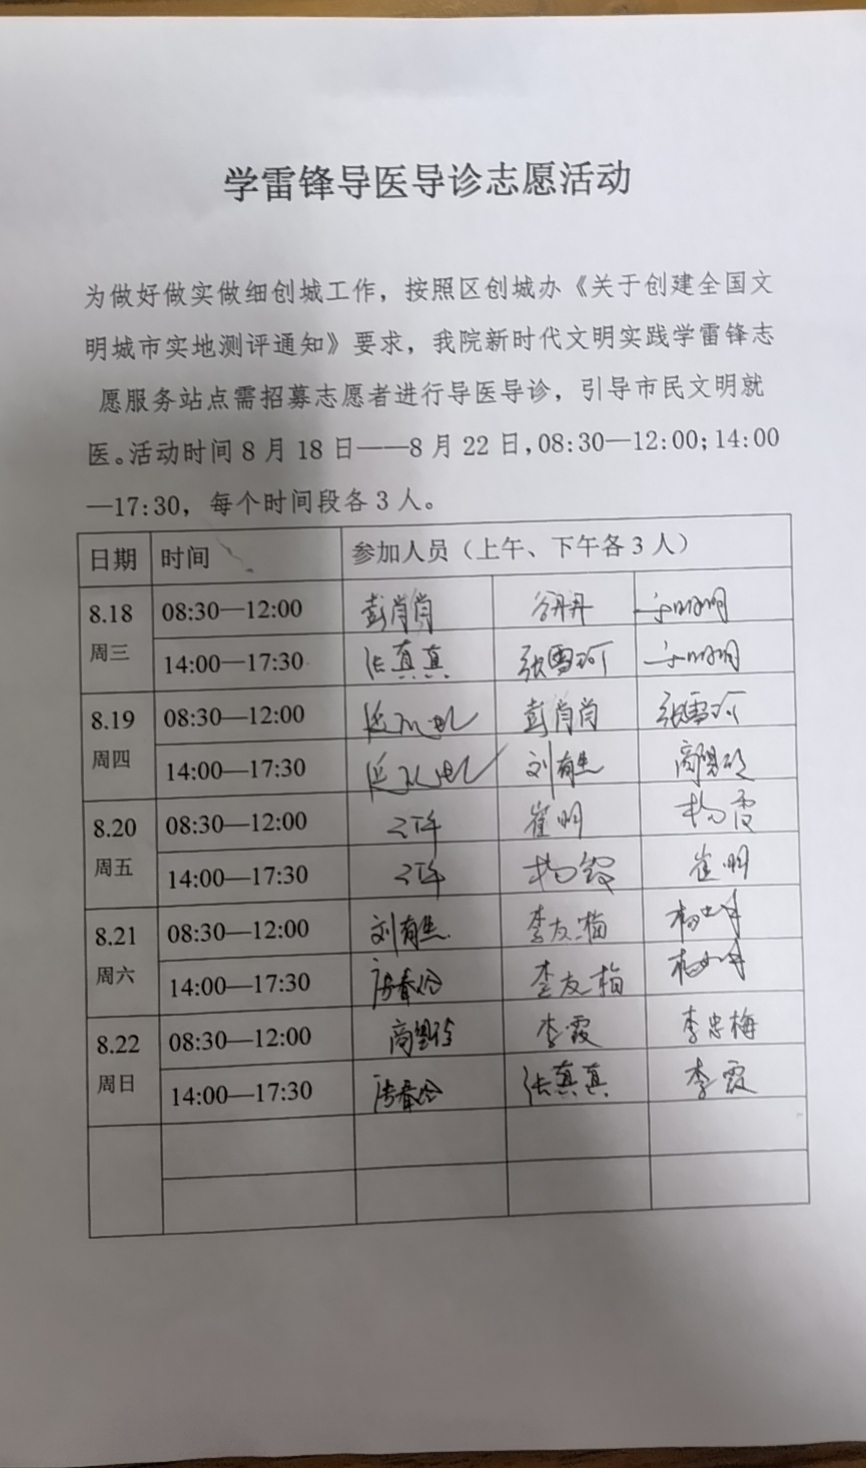 学雷锋导医导诊志愿活动
为做好做实做细创城工作，按照区创城办《关于创建全国文
明城市实地测评通知》要求，我院新时代文明实践学雷锋志
愿服务站点需招募志愿者进行导医导诊，引导市民文明就
医。活动时间8月18日——8月22日,08:30—12:00;14:00
—17:30，每个时间段各3人。
日期 时间 参加人员（上午、下午各3人）
8.18 周三 08:30—12:00 彭肖肖 谷丹丹
14:00—17:30 张真真 张雪珂
8.19 周四 08:30—12:00 彭肖肖 张雪珂
14:00—17:30 刘有生
8.20 周五 08:30—12:00 崔明 杨霞
14:00—17:30 杨霞 崔明
8.21 周六 08:30—12:00 刘有生 李友梅
14:00—17:30 李友梅
8.22 周日 08:30—12:00 李霞 李忠梅
14:00—17:30 张真真 李霞